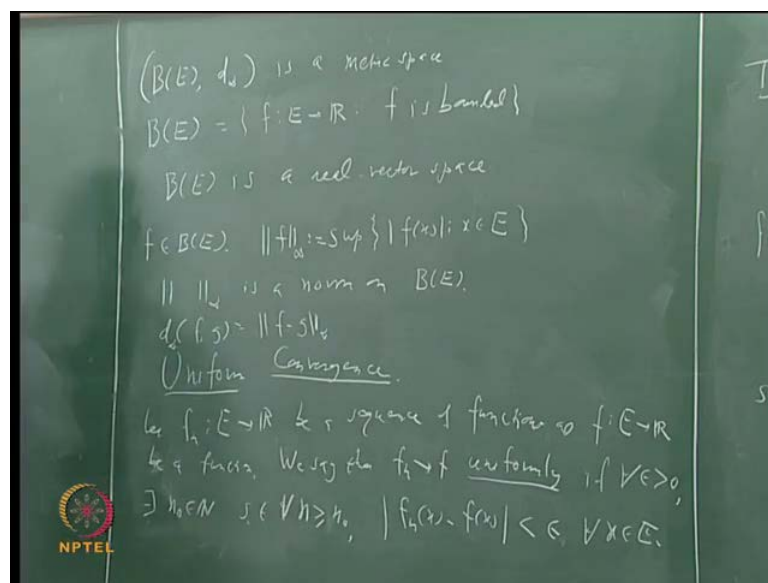 (B(E), d∞) is a metric space
B(E) = { f : E → ℝ : f is bounded }
B(E) is a real vector space
f ∈ B(E). ||f||∞ := Sup { |f(x)| : x ∈ E }
|| ||∞ is a norm on B(E).
d∞(f, g) = ||f - g||∞
Uniform Convergence.
Let fn : E → ℝ be a sequence of functions f : E → ℝ
be a function. We say that fn → f uniformly if ∀ ε > 0,
∃ n0 ∈ N s.t ∀ n ≥ n0, | fn(x) - f(x) | < ε, ∀ x ∈ E.
NPTEL